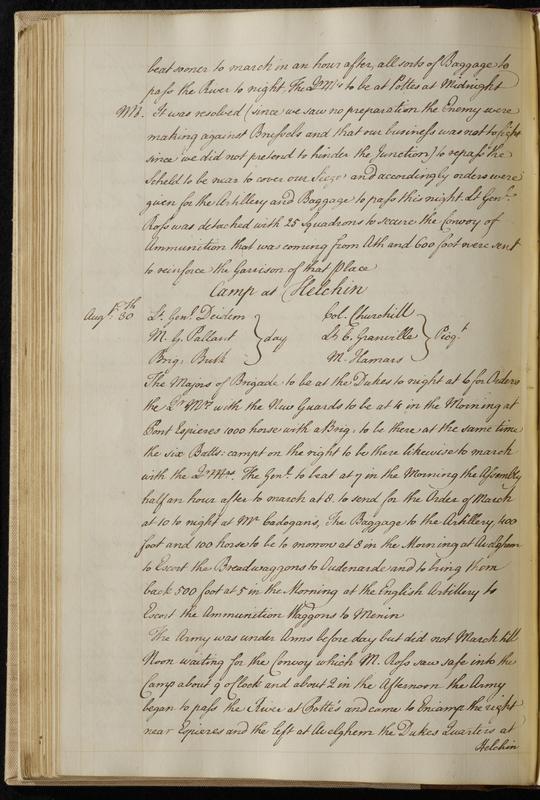 beat sooner to march in an hour after, all sorts of Baggage to
pass the River to night, The Qr. Mrs. to be at Pottes at Midnight
NB. It was resolved (since we saw no preparation the Enemy were
making against Brussels and that our business was not to fight
since we did not pretend to hinder the Junction) to repass the
Scheld to be near to cover our Siege and accordingly orders were
given for the Artillery and Baggage to pass this night. Lt. Genl.
Ross was detached with 25 Squadrons to secure the Convoy of
Ammunition that was coming from Ath and 600 foot were sent
to reinforce the Garrison of that Place
Camp at Helchin
Augt. 30th Lt. Genl. Dedem Col. Churchill
M. G. Pallant day Lt. C. Granville Piqt.
Brig. Bulk M. Hamars
The Majors of Brigade to be at the Dukes to night at 6 for Orders
the Qr. Mrs. with the New Guards to be at 4 in the Morning at
Pont Espieres 1000 horse with a Brig. to be there at the same time
the six Batts. campt on the right to be there likewise to march
with the Qr. Mrs. The Genl. to beat at 7 in the Morning the Assembly
half an hour after to march at 8. to send for the Order of March
at 10 to night at Mr. Cadogans, The Baggage to the Artillery, 400
foot and 100 horse to be to morrow at 8 in the Morning at Avelghem
to Escort the Breadwaggons to Oudenarde and to bring them
back 500 foot at 5 in the Morning at the English Artillery to
Escort the Ammunition Waggons to Menin
The Army was under Arms before day but did not March till
Noon waiting for the Convoy which M. Ross saw safe into the
Camp about 9 oClock and about 2 in the Afternoon the Army
began to pass the River at Pottes and came to Encamp the right
near Espieres and the left at Avelghem the Dukes Quarters at
Helchin